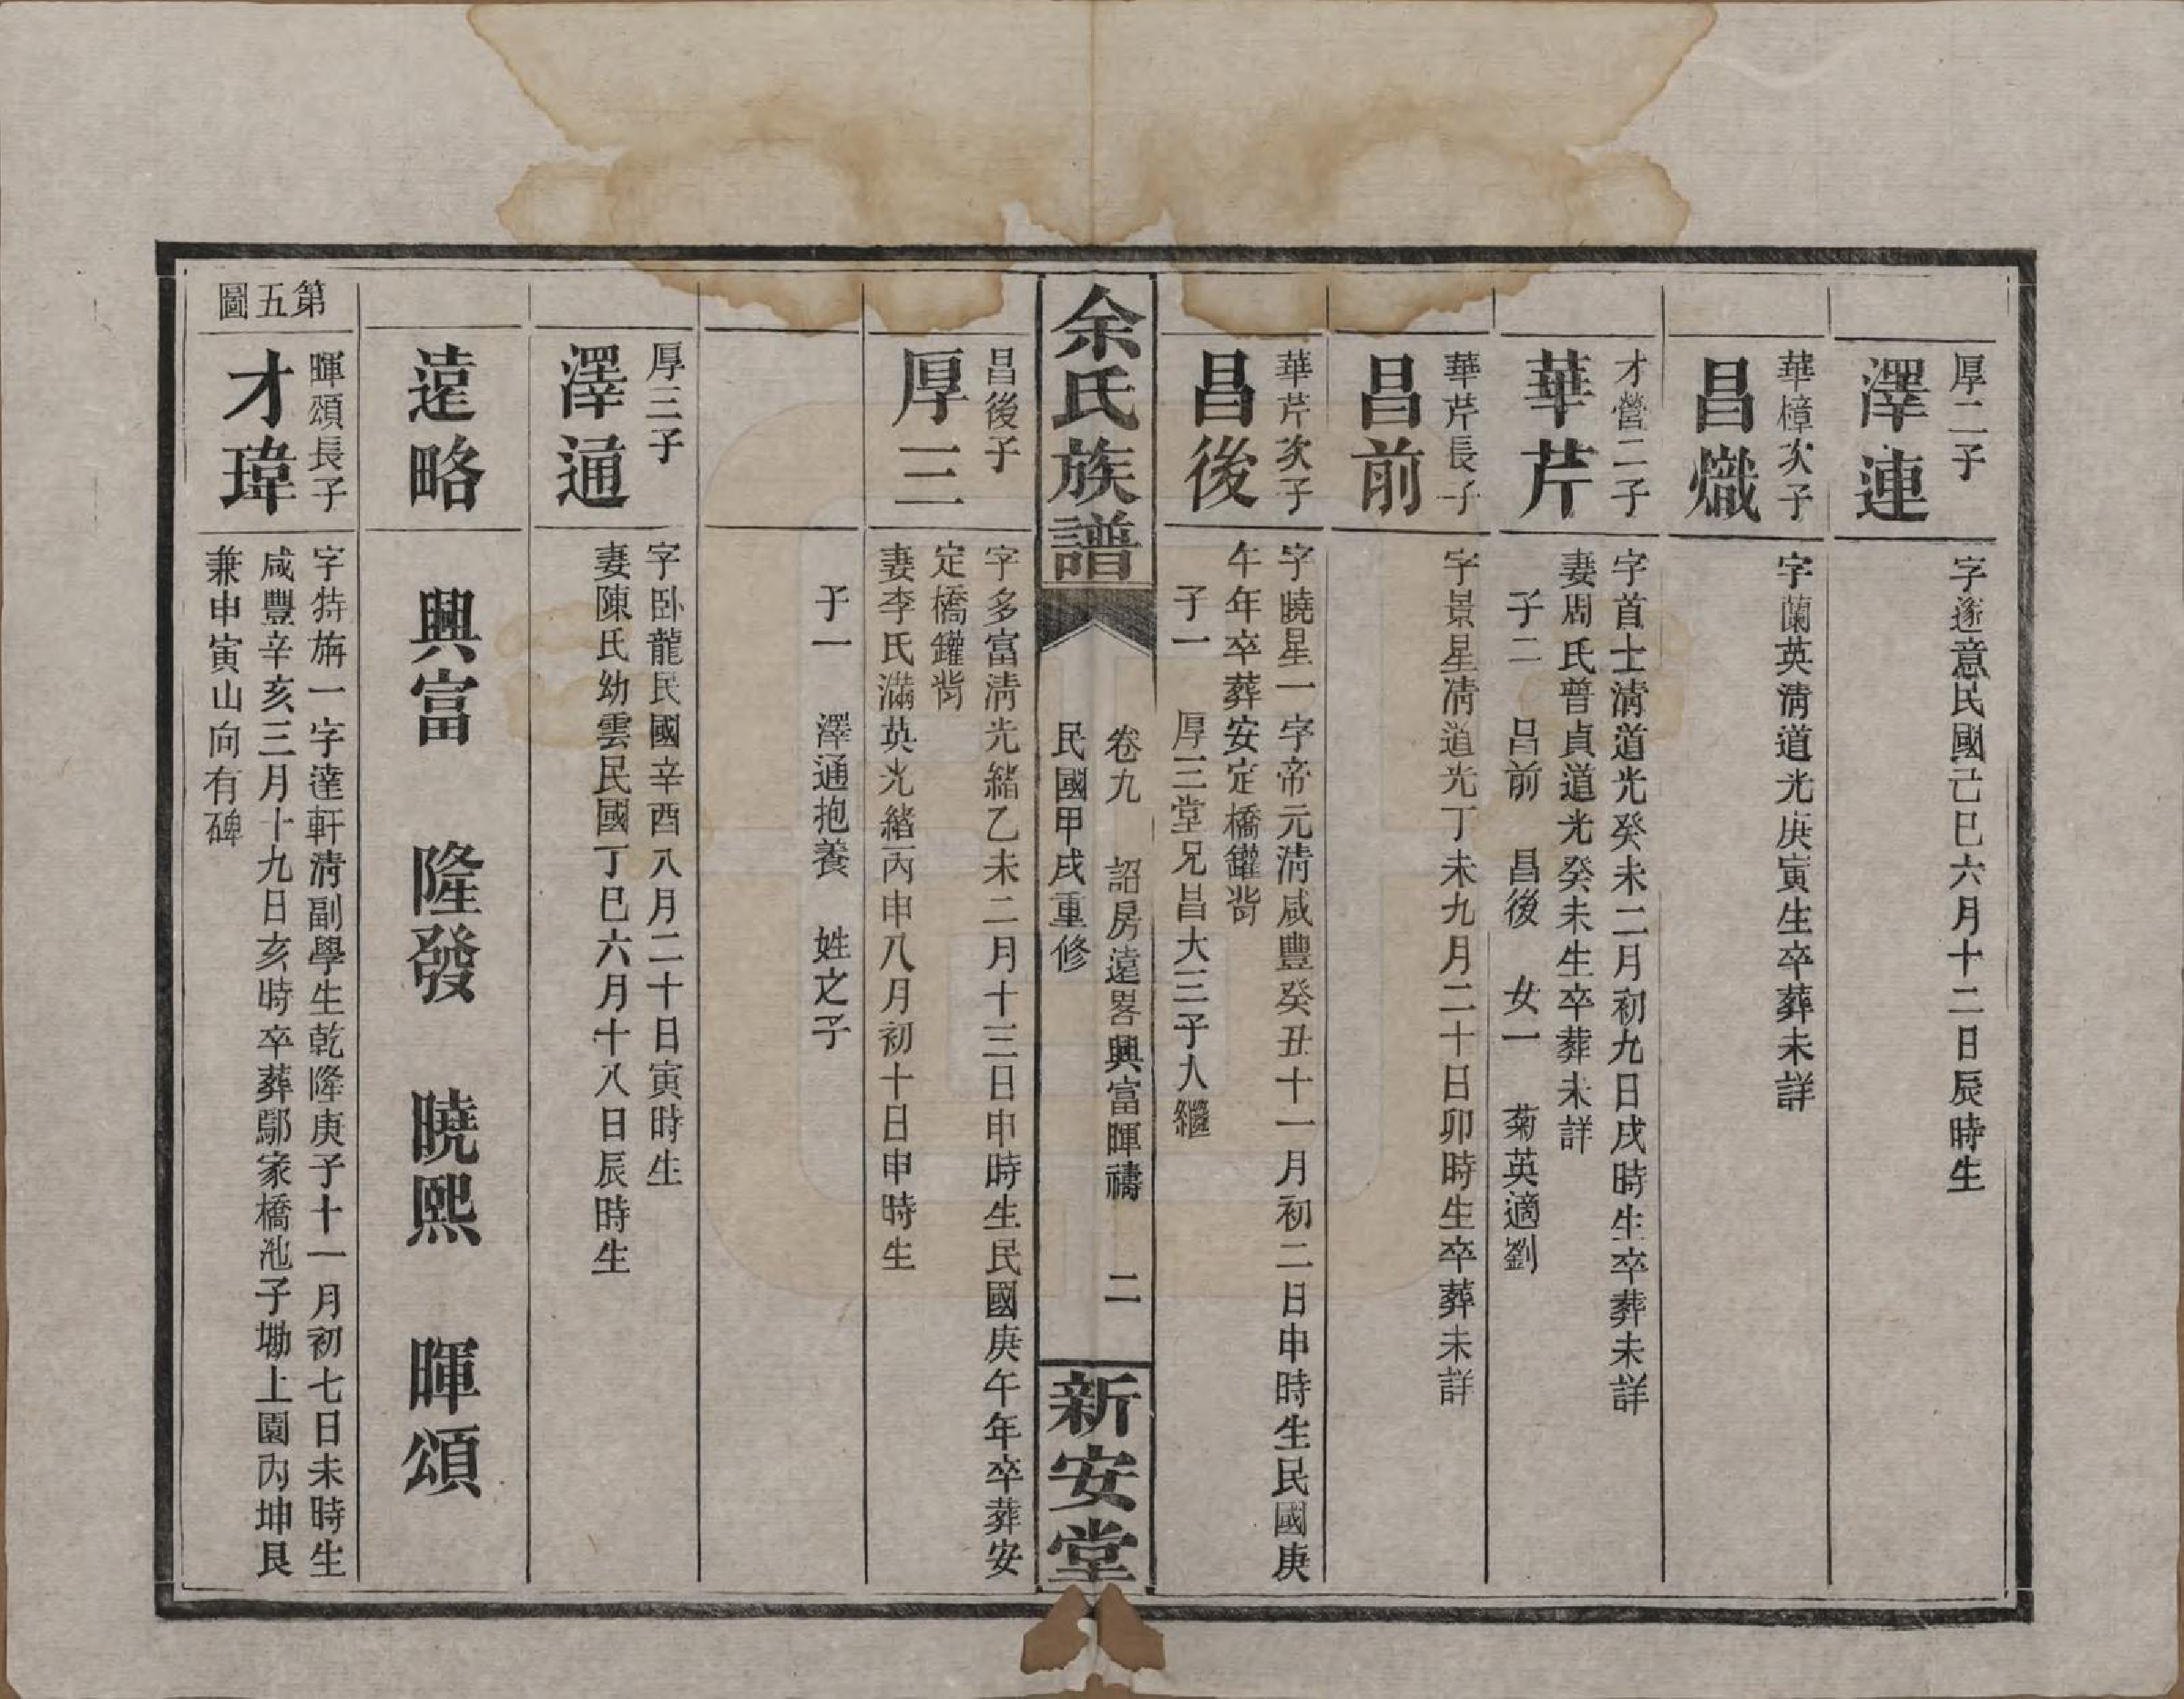 厚二子
澤連
字遂意民國己巳六月十二日辰時生
華樟次子
昌熾
字蘭英淸道光庚寅生卒葬未詳
才營二子
華芹
字首士淸道光癸未二月初九日戌時生卒葬未詳
妻周氏普貞道光癸未生卒葬未詳
子二　昌前　昌後　女一　菊英適劉
華芹長子
昌前
字景星淸道光丁未九月二十日卯時生卒葬未詳
華芹次子
昌後
字曉星一字帝元淸咸豐癸丑十一月初二日申時生民國庚
午年卒葬安定橋鑵嵴
子一　厚三堂兄昌大三子入繼
余氏族譜
卷九　詔房遠畧興富暉禱　二
民國甲戌重修
新安堂
昌後子
厚三
字多富淸光緒乙未二月十三日申時生民國庚午年卒葬安
定橋鑵嵴
妻李氏滿英光緒丙申八月初十日申時生
子一　澤通抱養　姓之子
厚三子
澤通
字卧龍民國辛酉八月二十日寅時生
妻陳氏幼雲民國丁巳六月十八日辰時生
遠略　興富　隆發　曉熙　暉頌
第五圖
暉頌長子
才瑋
字特旃一字達軒淸副學生乾隆庚子十一月初七日未時生
咸豐辛亥三月十九日亥時卒葬鄢家橋池子坳上園內坤艮
兼申寅山向有碑